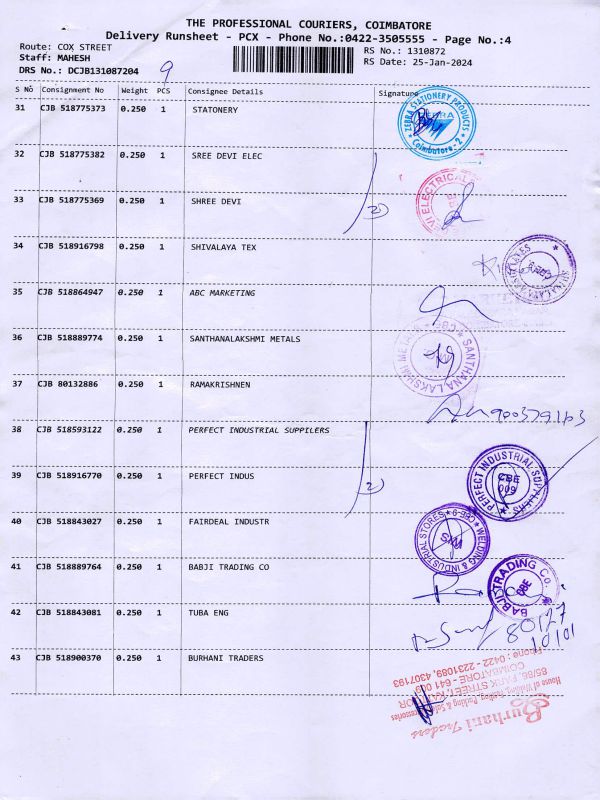 THE PROFESSIONAL COURIERS, COIMBATORE
Delivery Runsheet - PCX - Phone No.:0422-3505555 - Page No.:4
Route: COX STREET RS No.: 1310872
Staff: MAHESH RS Date: 25-Jan-2024
DRS No.: DCJB131087204 9
S No Consignment No Weight PCS Consignee Details Signature
31 CJB 518775373 0.250 1 STATONERY
ZEBRA STATIONERY PRODUCTS
ZEBRA
Coimbatore-2
32 CJB 518775382 0.250 1 SREE DEVI ELEC
33 CJB 518775369 0.250 1 SHREE DEVI
34 CJB 518916798 0.250 1 SHIVALAYA TEX
35 CJB 518864947 0.250 1 ABC MARKETING
36 CJB 518889774 0.250 1 SANTHANALAKSHMI METALS
37 CJB 80132886 0.250 1 RAMAKRISHNEN
38 CJB 518593122 0.250 1 PERFECT INDUSTRIAL SUPPILERS
39 CJB 518916770 0.250 1 PERFECT INDUS
PERFECT INDUSTRIAL SUPPLIERS
CBE
009
40 CJB 518843027 0.250 1 FAIRDEAL INDUSTR
WELDING & INDUSTRIAL STORES CBE-9
41 CJB 518889764 0.250 1 BABJI TRADING CO
BABJI TRADING CO.
CBE
42 CJB 518843081 0.250 1 TUBA ENG
80127
10101
43 CJB 518900370 0.250 1 BURHANI TRADERS
Burhani Traders
House of Welding, Packing & Safety Accessories
85/86, PARK STREET,
COIMBATORE - 641 009
Phone : 0422 - 2231089, 4307193